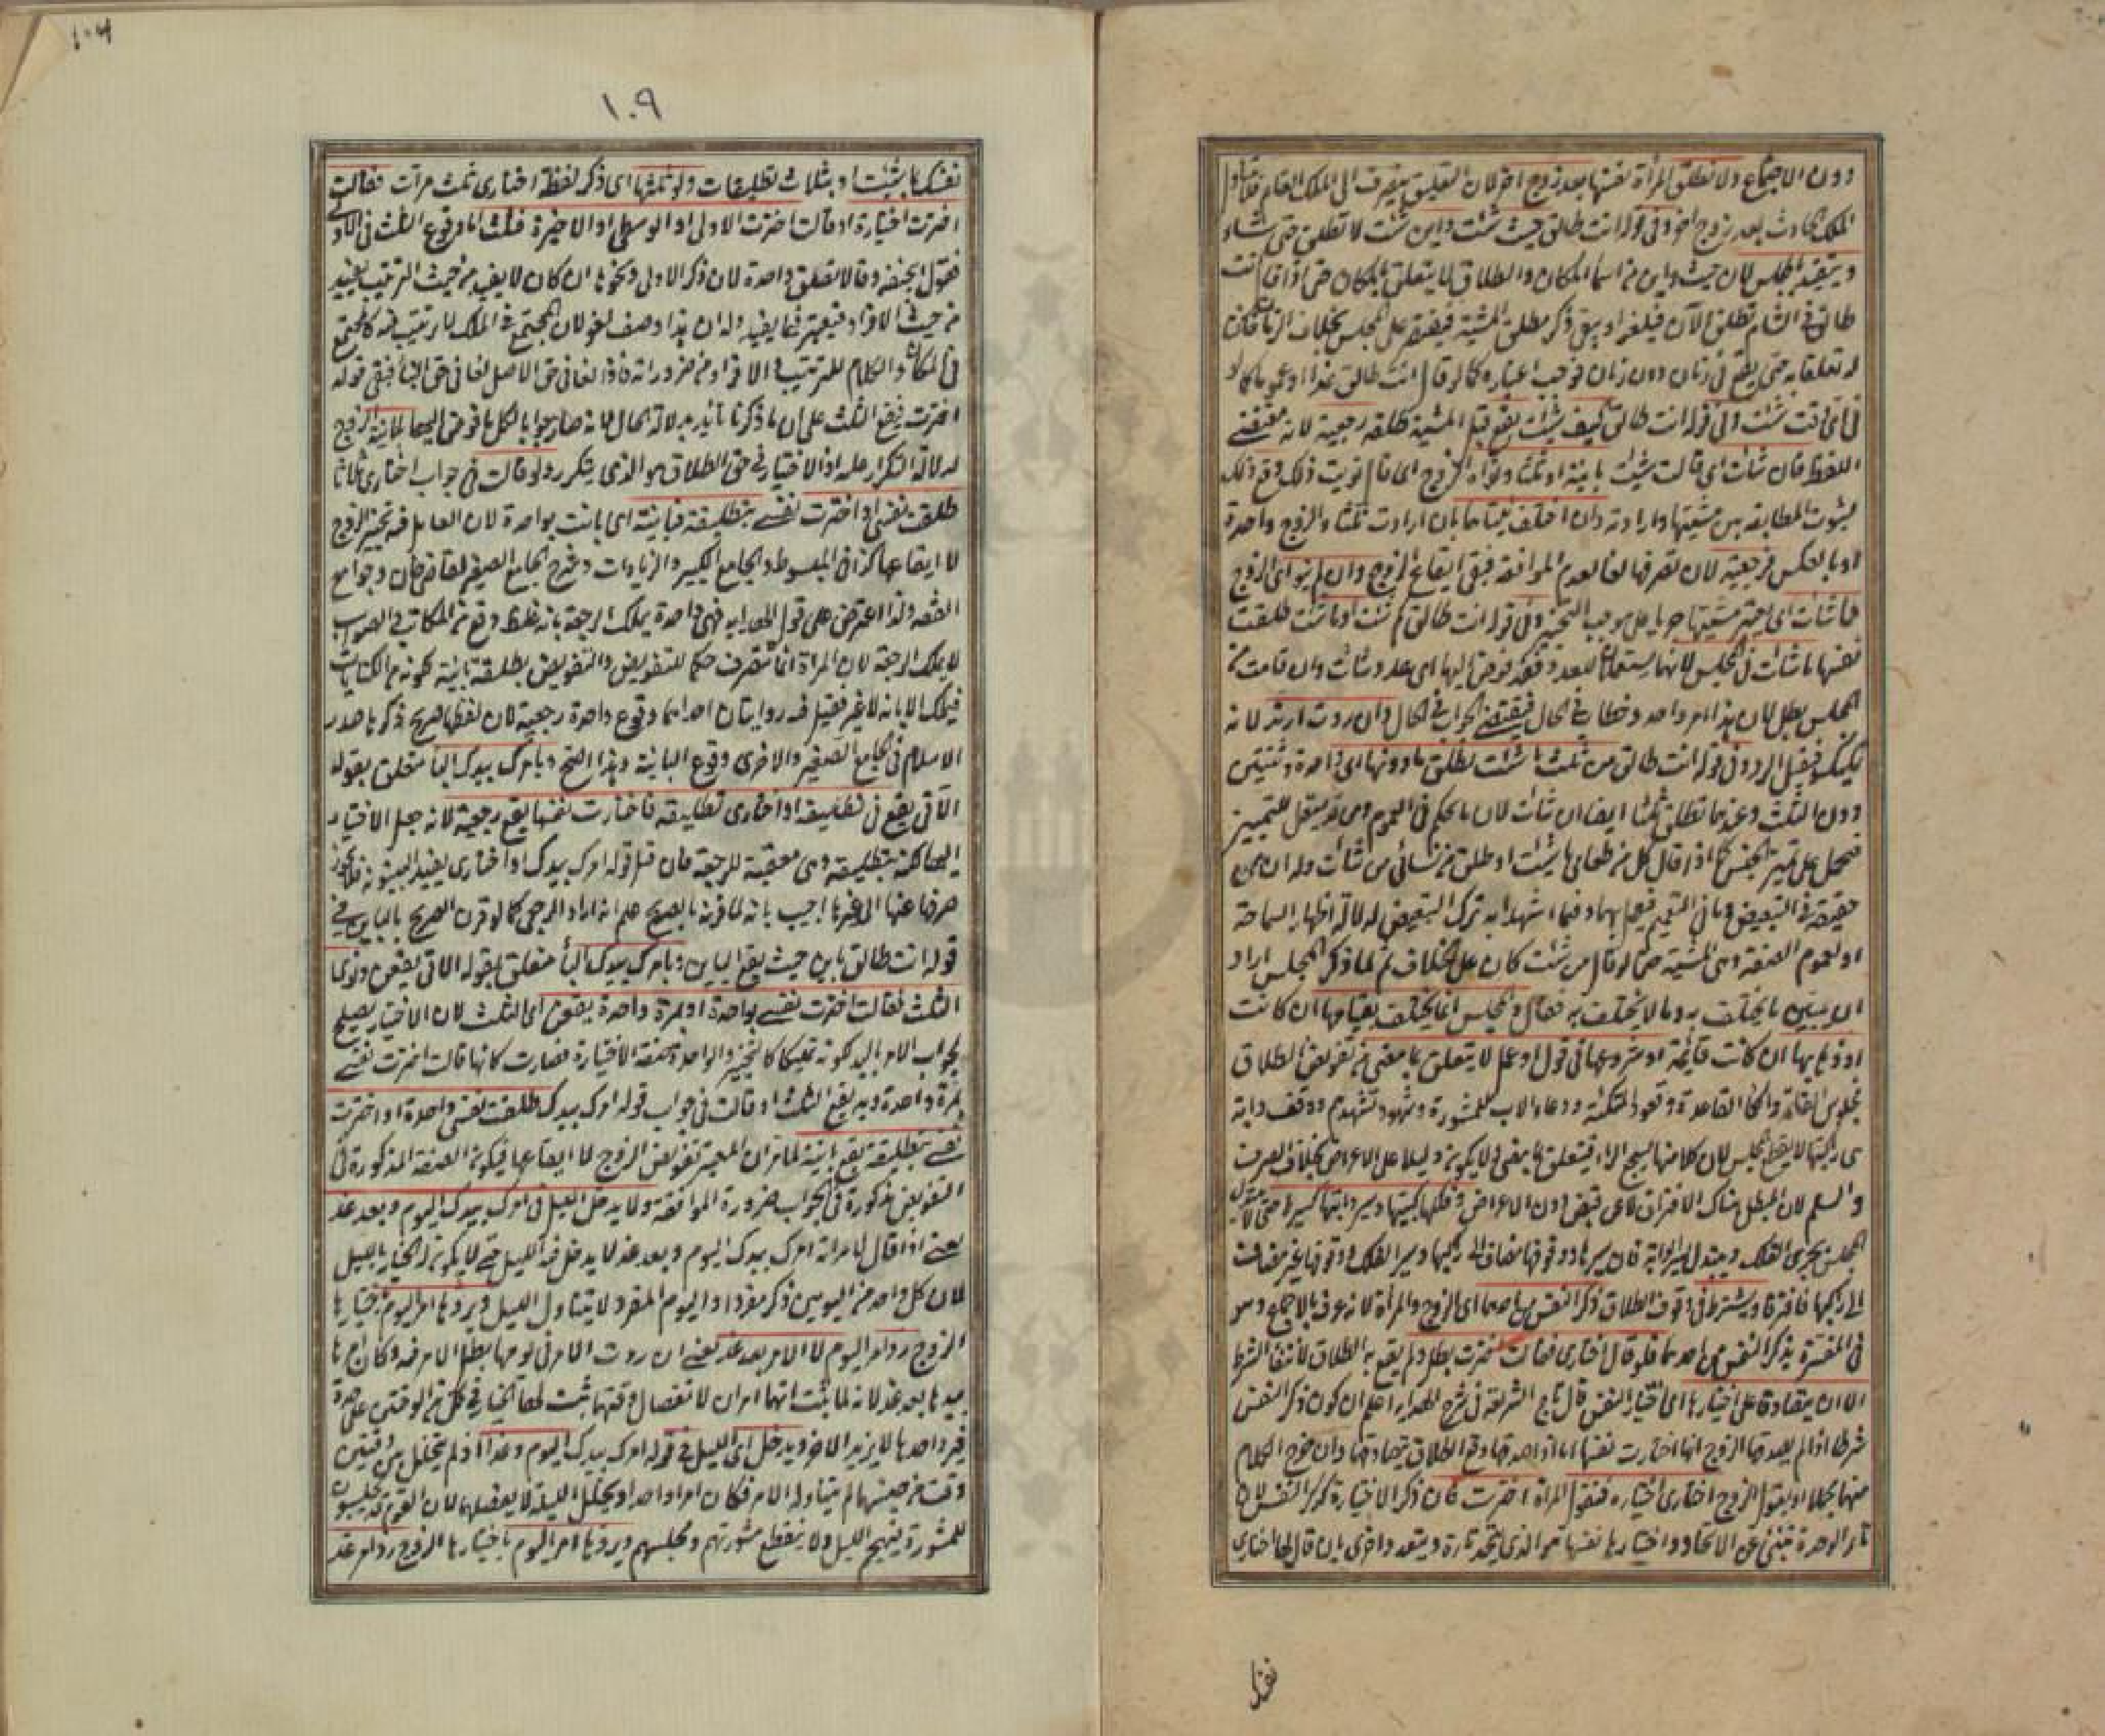 دون الاجتماع ولا تطلق المرأة نفسها بعد زوج آخر لان التعليق ينصرف الى الملك القائم فلا يتناول
الملك الحادث بعد زوج آخر وفي قوله انت طالق حيث شئت واين شئت لا تطلق حتى تشاء
ويتقيد بالمجلس لان حيث واين من اسماء المكان والطلاق لا يتعلق بالمكان حتى اذا قال انت
طالق في الشام تطلق الآن فيلغو ويبقى ذكر مطلق المشية فيقتصر على المجلس بخلاف الزمان فان
له تعلقا به حتى يقع في زمان دون زمان فوجب اعتباره كما لو قال انت طالق غدا او عموما كما لو
في اي وقت شئت وفي قوله انت طالق كيف شئت يقع قبل المشية طلقة رجعية لانه مقتضى
اللفظ فان شاءت اي قالت شئت باينة او ثلثا ونواه الزوج اي قال نويت ذلك وقع ذلك
لثبوت المطابقة بين مشيتها وارادته وان اختلف نيتاهما بان ارادت ثلثا والزوج واحدة
او بالعكس فرجعية لان تصرفها لغا لعدم الموافقة فبقي ايقاع الزوج وان لم ينو اي الزوج
فما شاءت اي يعتبر مشيتها جريا على موجب التخيير وفي قوله انت طالق كم شئت او ما شئت طلقت
نفسها ما شاءت في المجلس لانهما يستعملان للعدد فقد فوض اليها اي عدد شاءت وان قامت من
المجلس بطل لان هذا امر واحد وخطاب في الحال فيقتضي الجواب في الحال وان ردت ارتد لانه
تمليك فيقبل الرد وفي قوله انت طالق من ثلث ما شئت تطلق ما دونها اي واحدة وثنتين
دون الثلث وعندهما تطلق ثلثا ايضا ان شاءت لان ما محكم في العموم ومن قد يستعمل للتمييز
فيحمل على تمييز الجنس كما اذا قال كل من طعامي ما شئت او طلق من نسائي من شاءت وله ان من
حقيقة في التبعيض وما في التعميم فيعمل بهما وفيما استشهدا به ترك التبعيض لدلالة اظهار السماحة
او لعموم الصفة وهي المشية حتى لو قال من شئت كان على الخلاف ثم لما ذكر المجلس اراد
ان يبين ما يختلف به وما لا يختلف به فقال والمجلس انما يختلف بقيامها ان كانت
او ذهابها ان كانت قائمة او شروعها في قول او عمل لا يتعلق بما مضى من تفويض الطلاق
فجلوس القائمة واتكاء القاعدة وقعود المتكئة ودعاء الاب للمشورة وشهود تشهدهم ووقف دابة
هي راكبتها لا يقطع المجلس لان كلا منها لجمع الراي فيتعلق بما مضى ولا يكون دليلا على الاعراض بخلاف الصرف
والسلم لان المبطل هناك الافتراق لا عن قبض دون الاعراض وفلكها كبيتها وسير دابتها كسيرها حتى لا يتبدل
المجلس بجري الفلك ويتبدل بسير الدابة فان سيرها ووقوفها مضاف الى راكبها وسير الفلك ووقوفها غير مضافة
الى راكبها فافترقا ويشترط في وقوع الطلاق ذكر النفس من احدهما اي الزوج والمرأة لانه عرف بالاجماع وهو
في المفسرة بذكر النفس من احدهما فلو قال اختاري فقالت اخترت بطل ولم يقع به الطلاق لانتفاء الشرط
الا ان يتصادقا على اختيارها اي اختيار النفس قال تاج الشريعة في شرح الهداية اعلم ان كون ذكر النفس
شرطا اذا لم يصدقها الزوج انها اختارت نفسها اما اذا صدقها وقع الطلاق بتصادقهما وان خرج الكلام
منهما مجملا او يقول الزوج اختاري اختيارة فتقول المرأة اخترت فان ذكر الاختيارة كذكر النفس لان
تاء الوحدة تنبئ عن الاتحاد واختيارها نفسها هو الذي يتحد تارة ويتعدد اخرى بان قال لها اختاري
نفسك
١٠٩
نفسك ما شئت او بثلاث تطليقات ولو ثلثها اي ذكر لفظة اختاري ثلث مرات فقالت
اخترت اختيارة او قالت اخترت الاولى او الوسطى او الاخيرة فثلث اما وقوع الثلث في الاولى
فقول ابي حنيفة وقالا تطلق واحدة لان ذكر الاولى ونحوها ان كان لا يفيد من حيث الترتيب يفيد
من حيث الافراد فيعتبر فيما يفيد وله ان هذا وصف لغو لان المجتمع في الملك لا ترتيب فيه كالمجتمع
في المكان والكلام للترتيب والافراد من ضروراته فاذا لغا في حق الاصل لغا في حق البناء فبقي قوله
اخترت فيقع الثلث على ان ما ذكرنا تأيد بدلالة الحال فانه صار جوابا لكل ما فوض اليها بلا نية الزوج
لدلالة التكرار عليه اذ الاختيار في حق الطلاق هو الذي يتكرر ولو قالت في جواب اختاري ثلاثا
طلقت نفسي او اخترت نفسي بتطليقة فباينة اي بانت بواحدة لان العامل فيه تخيير الزوج
لا ايقاعها كذا في المبسوط والجامع الكبير والزيادات وشرح الجامع الصغير لقاضيخان وجوامع
الفقه ولذا اعترض على قول الهداية فهي واحدة يملك الرجعة بانه غلط وقع من الكاتب والصواب
لا يملك الرجعة لان المرأة انما تتصرف حكما للتفويض والتفويض بطلقة باينة لكونه من الكنايات
فيملك الابانة لا غير فقيل فيه روايتان احداهما وقوع واحدة رجعية لان لفظها صريح ذكرها صدر
الاسلام في الجامع الصغير والاخرى وقوع الباينة وهذا اصح وبامرك بيدك الباء متعلق بقوله
الآتي يقع في تطليقة او اختاري تطليقة فاختارت نفسها يقع رجعية لانه جعل الاختيار
اليها لكنه بتطليقة وهي معقبة للرجعة فان قيل قوله امرك بيدك او اختاري يفيد البينونة فلا يجوز
صرفها عنها الى غيرها اجيب بانه لما قرنه بالصريح علم انه اراد الرجعي كما لو قرن الصريح بالباين في
قوله انت طالق باين حيث يقع الباين وبامرك بيدك الباء متعلق بقوله الآتي يقعن ونوى
الثلث فقالت اخترت نفسي بواحدة او بمرة واحدة يقعن اي الثلث لان الاختيار يصلح
لجواب الامر باليد لكونه تمليكا كالتخيير والواحدة صفة الاختيارة فصارت كانها قالت اخترت نفسي
بمرة واحدة وبه يقع الثلث او قالت في جواب قوله امرك بيدك طلقت نفسي واحدة او اخترت
نفسي بتطليقة يقع باينة لما مر ان المعتبر تفويض الزوج لا ايقاعها فيكون الصفة المذكورة في
التفويض مذكورة في الجواب ضرورة الموافقة ولا يدخل الليل في امرك بيدك اليوم وبعد غد
يعني اذا قال لامرأته امرك بيدك اليوم وبعد غد لا يدخل فيه الليل حتى لا يكون لها الخيار بالليل
لان كل واحد من اليومين ذكر مفردا واليوم المفرد لا يتناول الليل ويرد امر اليوم باختيارها
الزوج رد امر اليوم لا الامر بعد غد يعني ان ردت الامر في يومها بطل الامر فيه وكان امرها
بيدها بعد غد لانه لما ثبت انهما امران لانفصال وقتهما ثبت لها الخيار في كل من الوقتين على حدة
فبرد احدهما لا يرتد الآخر ويدخل اي الليل في قوله امرك بيدك اليوم وغدا اذ لم يتخلل بين وقتين
وقت من جنسهما لم يتناوله الامر فكان امرا واحدا وتخلل الليلة لا يفصلهما لان القوم قد يجلسون
للمشورة فيهجم الليل ولا ينقطع مشورتهم ومجلسهم ويرد امر اليوم باختيارها الزوج رد امر غد